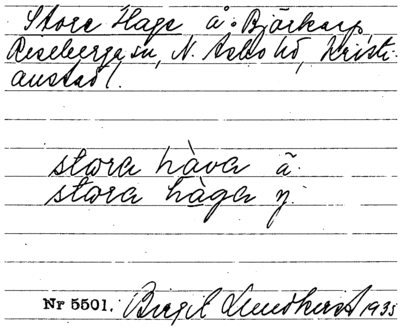 Store Hage å. Björkarp,
Riseberga sn, N. Åsbo hd, Kristi-
anstad l.
stora hàva ä.
stora hàga y.
Nr 5501. Birgit Lundkvist 1935